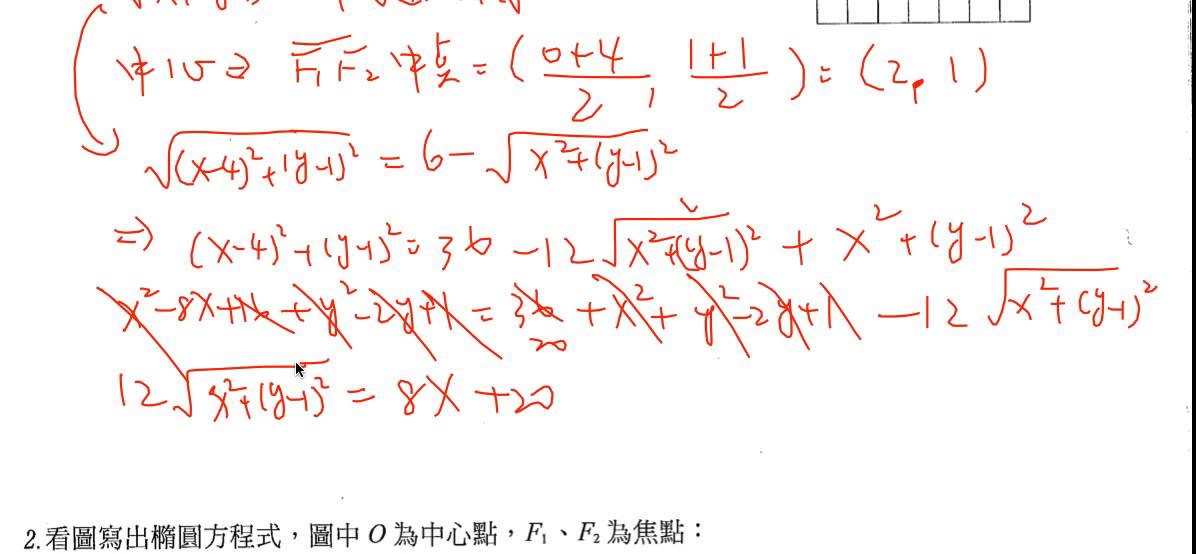 中心⇒ F₁F₂中點 = (0+4/2, 1+1/2) = (2, 1)
√(x-4)²+(y-1)² = 6-√x²+(y-1)²
⇒ (x-4)²+(y-1)² = 36-12√x²+(y-1)² + x²+(y-1)²
x²-8x+16+y²-2y+1 = 36+x²+y²-2y+1-12√x²+(y-1)²
20
12√x²+(y-1)² = 8x+20
2.看圖寫出橢圓方程式，圖中 O 為中心點，F₁、F₂ 為焦點：